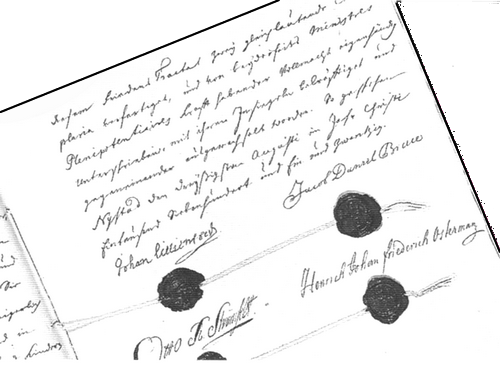 diesem Friedens Tractat zwey gleichlautende
plaria verfertiget, und von beyderseits Ministres
Plenipotentiaires krafft habender Vollmacht eigenhändig
unterschrieben, mit ihren Insiegeln bekräfftiget und
gegeneinander ausgewechselt worden. So geschehen
Nystad den dreyßigsten Augusti im Jahr Christi
Eintausend Siebenhundert und Ein und Zwantzig.
Jacob Daniel Bruce
Johan Lillienstedt
Henrich Johan Friederich Osterman
Otto R Strömfelt.